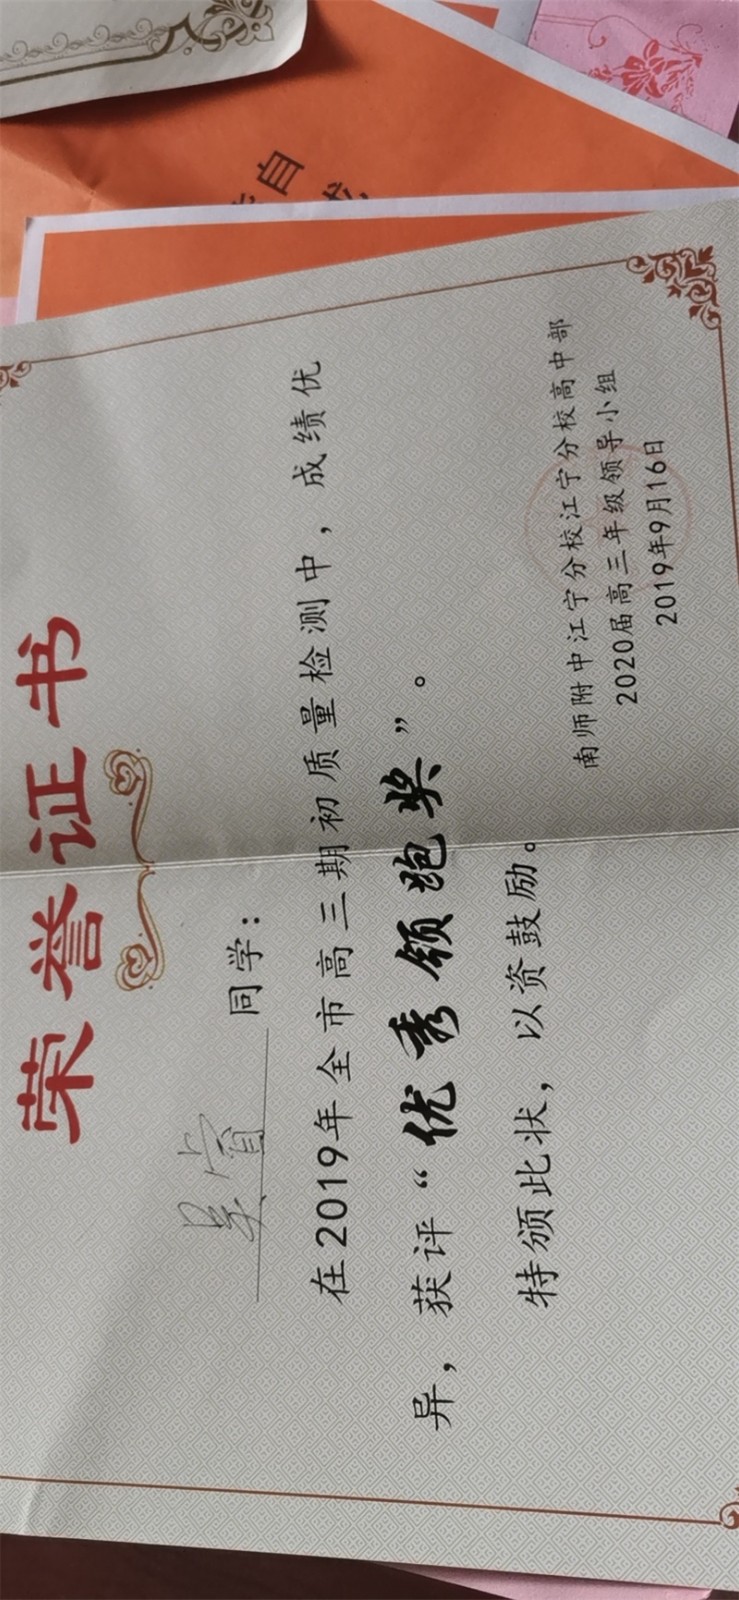 荣誉证书
吴宣 同学：
在2019年全市高三期初质量检测中，成绩优
异，获评“优秀领跑奖”。
特颁此状，以资鼓励。
南师附中江宁分校江宁分校高中部
2020届高三年级领导小组
2019年9月16日
自